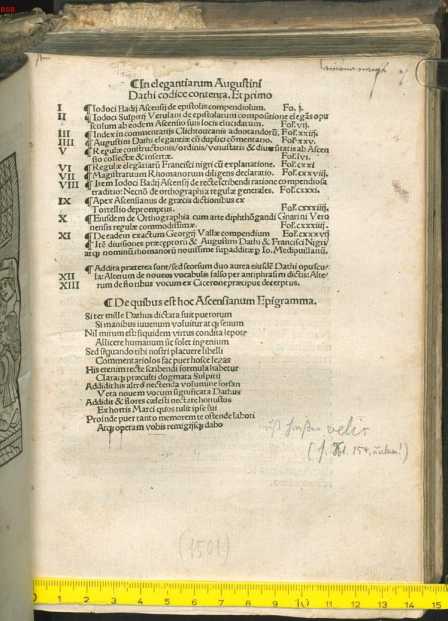 ¶In elegantiarum Augustini
Dathi codice contenta. Et primo
I ¶Iodoci Badij Ascensij de epistolis compendiolum. Fo. j.
II ¶Iodoci Sulpitij Verulani de epistolarum compositione elegãs opu
sculum ab eodem Ascensio suis locis elucidatum. Fol. vij.
III ¶Index in commentarijs Clichtoueanis adnotandorũ. Fol. xxiij.
IIII ¶Augustini Dathi elegantiæ cũ duplici cõmentario. Fol. xxv.
V ¶Regulæ constructionis/ordinis/venustatis & diuersitatis ab Ascen
sio collectæ & insertæ. Fol. lvi.
VI ¶Regulæ elegantiarũ Francisci nigri cũ explanatione. Fol. cxxi
VII ¶Magistratuum Rhomanorum diligens declaratio. Fol. cxxviij.
VIII ¶Item Iodoci Badij Ascensij de recte scribendi ratione compendiosa
traditio: Necnõ de orthographia regulæ generales. Fol. cxxxi.
IX ¶Apex Ascensianus de græcis dictionibus ex
Tortellio depromptus. Fol. cxxxiij.
X ¶Eiusdem de Orthographia cum arte diphthõgandi Guarini Vero
nensis regulæ commodissimæ. Fol. cxxxiij.
XI ¶De eadem exactum Georgij Vallæ compendium Fol. cxxxvij
¶Itẽ diuersiones præceptorũ & Augustini Dathi & Francisci Nigri/
atqȝ nominũ rhomanorũ nouissime supadditæ p Io. Medipullanũ.
¶Addita præterea sunt/sed seorsum duo aurea eiusdẽ Dathi opuscu
XII la: Alterum de nouem vocabulis falso per antiphrasim dictis: Alte/
XIII rum de floribus vocum ex Cicerone præcipue decerptus.
¶De quibus est hoc Ascensianum Epigramma.
Si ter mille Dathus dictata fuit puerorum
Si manibus iuuenum voluitur atqȝ senum
Nil mirum est: siquidem virtus condita lepore
Allicere humanum sic solet ingenium
Sed siquando tibi nostri placuere libelli
Commentariolos fac puer hosce legas
His etenim recte scribendi formula habetur
Claraqȝ præculti dogmata Sulpitij
Addidit his alter nectenda volumine
Vera nouem vocum significata Dathus
Addidit & flores cælesti nectare honustos
Ex hortis Marci quos tulit ipse sui
Proinde puer tanto memorem te ostende labori
Atqȝ operam vobis remigijsqȝ dabo
velis
(1501)
0 1 2 3 4 5 6 7 8 9 10 11 12 13 14 15